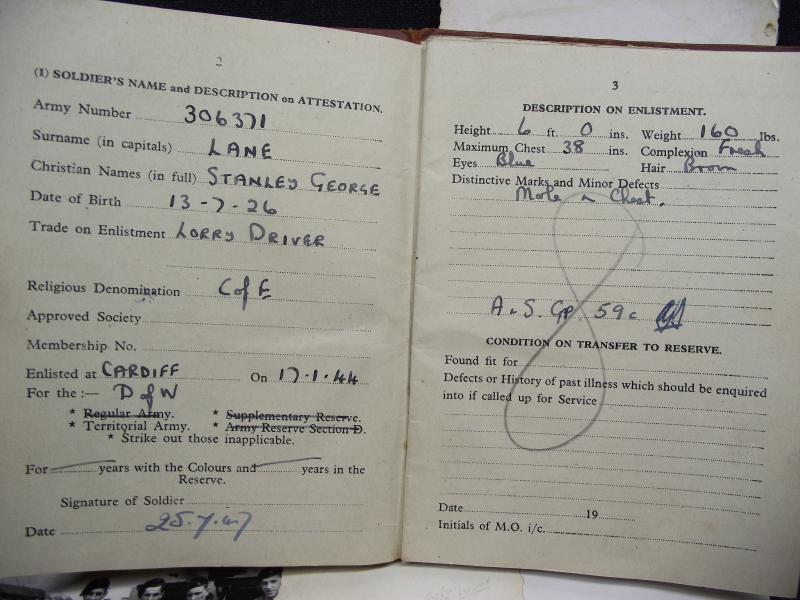 2
(1) SOLDIER'S NAME and DESCRIPTION on ATTESTATION.
Army Number 306371
Surname (in capitals) LANE
Christian Names (in full) STANLEY GEORGE
Date of Birth 13-7-26
Trade on Enlistment LORRY DRIVER
Religious Denomination C of E
Approved Society
Membership No.
Enlisted at CARDIFF On 17.1.44
For the :— D of W
* Regular Army. * Supplementary Reserve.
* Territorial Army. * Army Reserve Section D.
* Strike out those inapplicable.
For years with the Colours and years in the
Reserve.
Signature of Soldier
Date 25.7.47
3
DESCRIPTION ON ENLISTMENT.
Height 6 ft. 0 ins. Weight 160 lbs.
Maximum Chest 38 ins. Complexion Fresh
Eyes Blue Hair Brown
Distinctive Marks and Minor Defects
Mole on Chest.
A & S. GP. 59c
CONDITION ON TRANSFER TO RESERVE.
Found fit for
Defects or History of past illness which should be enquired
into if called up for Service
Date 19
Initials of M.O. i/c.